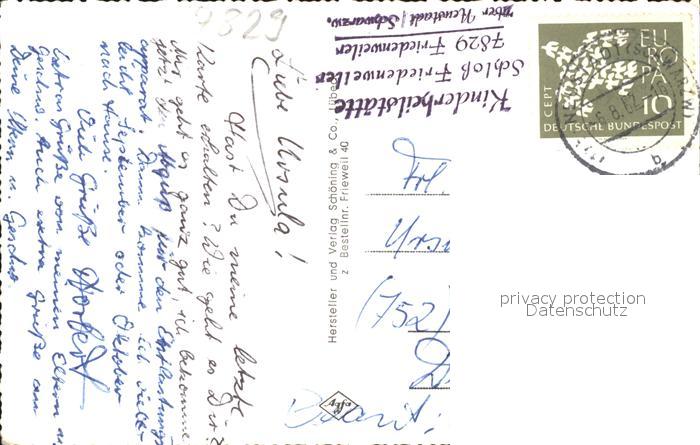 9829
Liebe Ursula!
Hast Du meine letzte
Karte erhalten? Wie geht es Dir?
Mir geht es ganz gut, ich bekomme
jetzt den Gips für den Entlastungs
apparat. Dann komme ich viel-
leicht September oder Oktober
nach Hause.
Viele Grüße Norbert
Extra Grüße von meinen Eltern u.
Geschw. Auch extra Grüße an
Deine Mam u. Geschw.
Hersteller und Verlag Schöning & Co., Lübeck
Bestellnr. Friewell 40
Kinderheilstätte
Schloß Friedenweiler
7829 Friedenweiler
über Neustadt/Schwarzw.
EUROPA
CEPT
10
DEUTSCHE BUNDESPOST
Frl.
Urs
(752)
privacy protection
Datenschutz